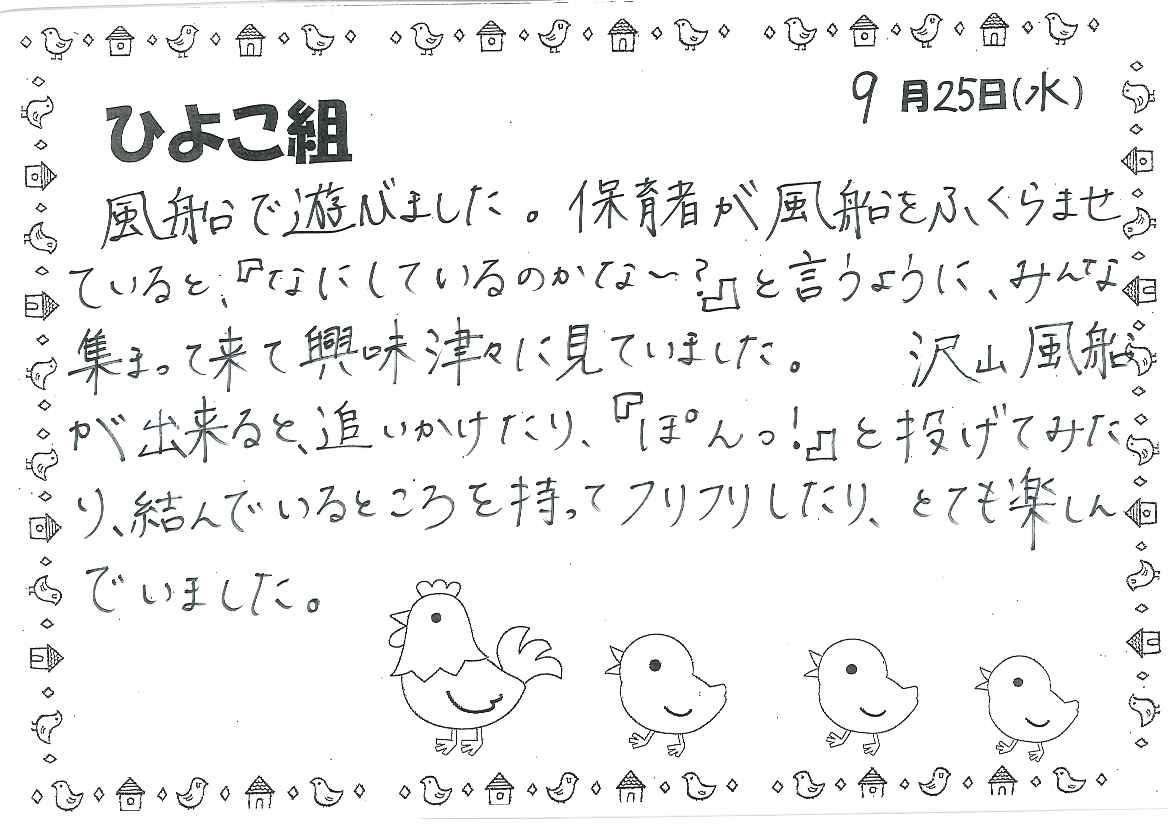 9月25日(水)
ひよこ組
風船で遊びました。保育者が風船をふくらませ
ていると、『なにしているのかな～?』と言うように、みんな
集まって来て興味津々に見ていました。 沢山風船
が出来ると、追いかけたり、『ぽんっ!』と投げてみた
り、結んでいるところを持ってフリフリしたり、とても楽しん
でいました。